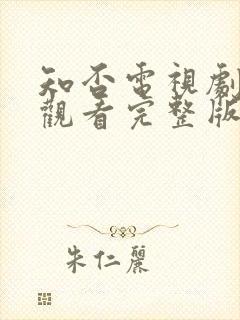 知否電視劇
觀看完整版
朱仁麗